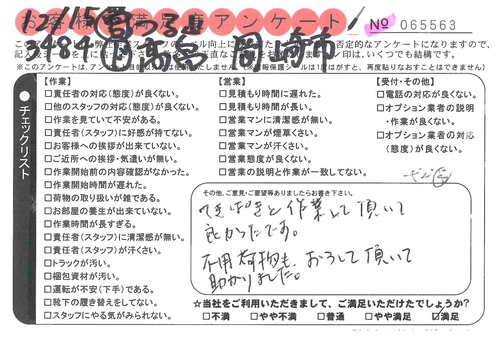 お客様満足度アンケート
№ 065563
岡崎市
チェックリスト
【作業】
□責任者の対応(態度)が良くない。
□他のスタッフの対応(態度)が良くない。
□作業を見ていて不安がある。
□責任者(スタッフ)に好感が持てない。
□お客様への挨拶が出来ていない。
□ご近所への挨拶・気遣いが無い。
□作業開始前の内容確認がなかった。
□作業開始時間が遅れた。
□荷物の取り扱いが雑である。
□お部屋の養生が出来ていない。
□作業時間が長すぎる。
□責任者(スタッフ)に清潔感が無い。
□責任者(スタッフ)が汗くさい。
□トラックが汚い。
□梱包資材が汚い。
□運転が不安(下手)である。
□靴下の履き替えをしてない。
□スタッフにやる気がみられない。
【営業】
□見積もり時間に遅れた。
□見積もり時間が長い。
□営業マンに清潔感が無い。
□営業マンが煙草くさい。
□営業マンが汗くさい。
□営業態度が良くない。
□営業の説明と作業が一致してない。
【受付・その他】
□電話の対応が良くない。
□オプション業者の説明
・作業が良くない。
□オプション業者の対応
(態度)が良くない。
その他、ご意見・ご要望等ありましたらお書き下さい。
てきぱきと作業して頂いて
良かったです。
不用荷物も、おろして頂いて
助かりました。
☆当社をご利用いただきまして、ご満足いただけたでしょうか?
□不満 □やや不満 □普通 □やや満足 ☑満足